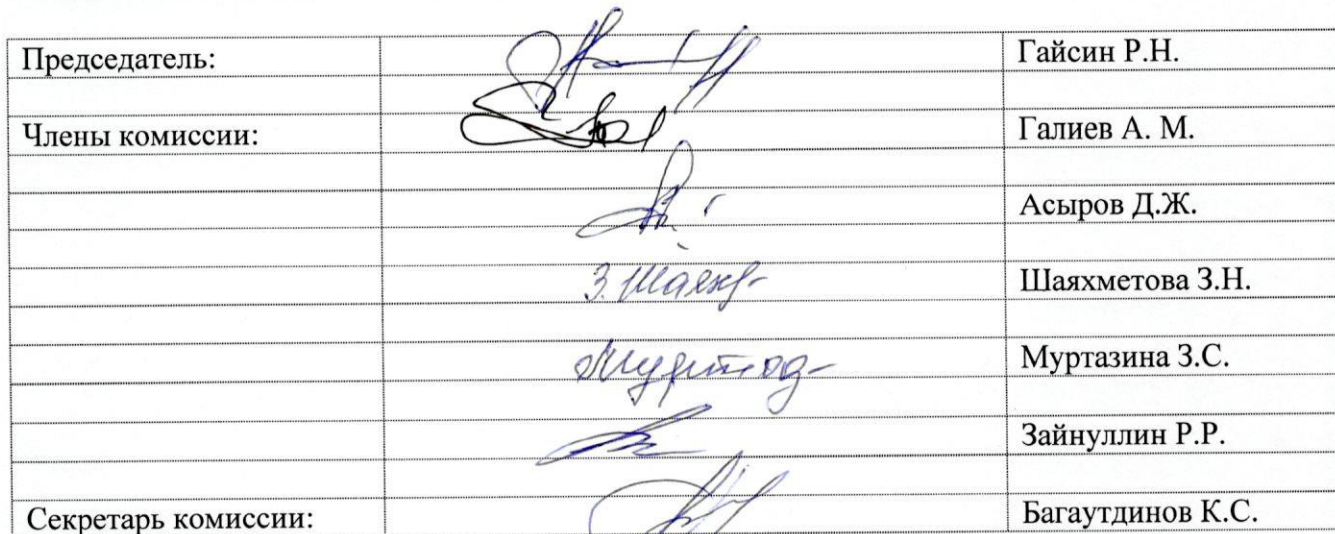 Председатель: Гайсин Р.Н.
Члены комиссии: Галиев А. М.
Асыров Д.Ж.
З. Шаях Шаяхметова З.Н.
Муртазина З.С.
Зайнуллин Р.Р.
Секретарь комиссии: Багаутдинов К.С.